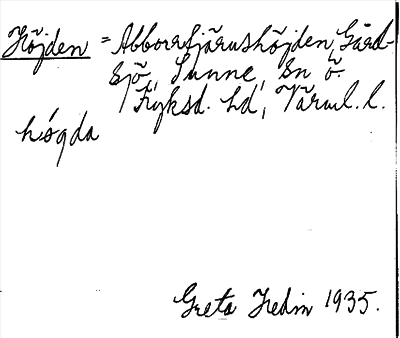 Höjden = Abborrtjärnshöjden, Gård-
sjö, Sunne sn Ö.
Fryksd. hd, Värml. l.
högda
Greta Hedin 1935.